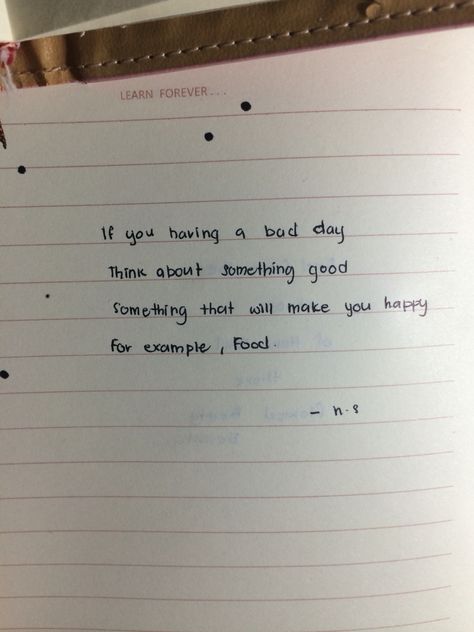 LEARN FOREVER...
If you having a bad day
Think about something good
Something that will make you happy
For example, Food.
- n.s